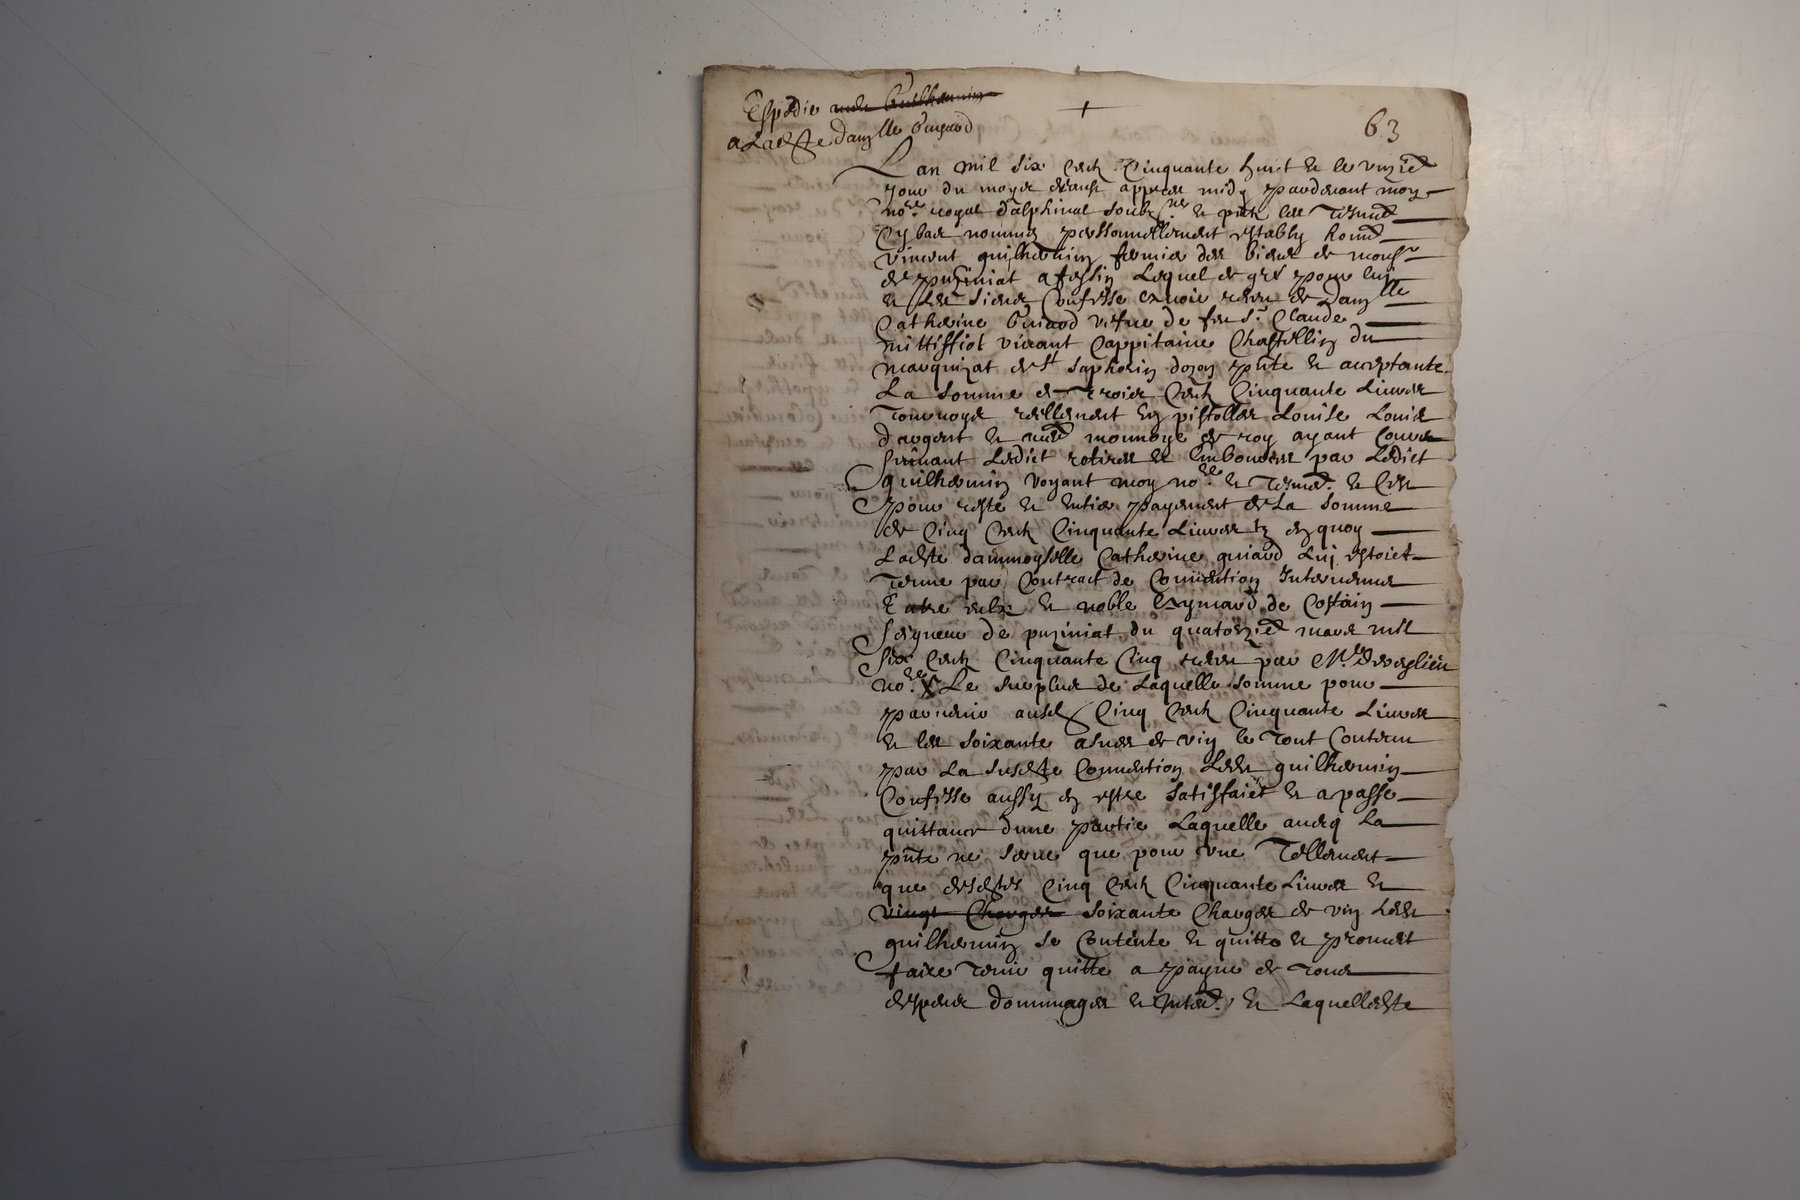 Espedie audt Guilhermin
a Ladte damlle Guyard
63
Lan mil six centz cinquante huit et le vinzie
jour du moys daust appres midy pardevant moy
nore royal dalphinal soubzne et pntz les tesmns
cy bas nommez personnellement estably honn
vincent guilhermin fermier des biens de monsr
de puziniat a fessin Lequel de gre pour luy
et les siens confesse avoir receu de damlle
Catherine Guiard vefve de feu sr Claude
mittiffiot vivant cappitaine chastellin du
marquizat de st saphorin dozon pnte et acceptante
La somme de Trois centz cinquante Livres
Tournoys reellement en pistolles Louise Louis
d'argent et aues monnoye de roy ayant cours
suivant Ledict retires et emboursse par Ledict
guilhermin voyant moy nore et Tesmns et cest
pour reste et entier payement de La somme
de cinq centz cinquante Livres tz en quoy
Ladte dammoyselle Catherine guiard Luy estoict
Tenue par contract de convention Intervenue
Entre eulx et noble Eymard de Costain
Seigneur de puziniat du quatorzie mars mil
six centz cinquante cinq receu par Me
nore Le surplus de Laquelle somme pour
parvenir ausd cinq centz cinquante Livres
et les soixante asnes de vin le Tout contenu
par La susdte convention Ledt guilhermin
confesse aussy en estre satisfaict et a passe
quittance dune partie Laquelle avecq La
pnte ne serve que pour une Tellement
que desdtes cinq centz cinquante Livres et
vingt charges soixante charges de vin Ledt
guilhermin se contente et quitte et promet
faire Tenir quitte a payne de Tous
despens dommages et Interes et Laquelledte